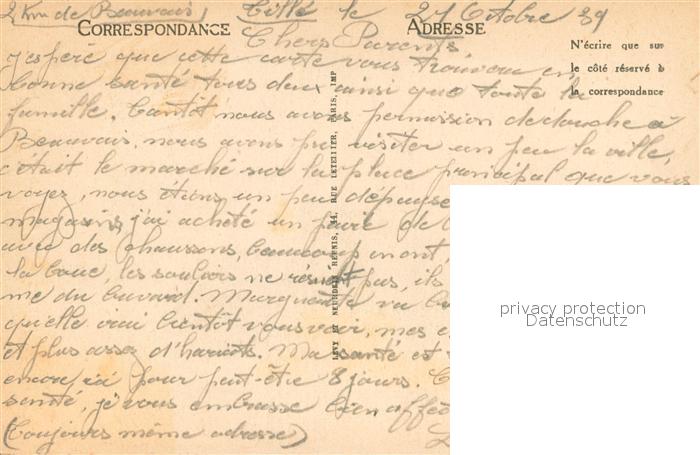 2 Km de Beauvais) Tillé le 21 Octobre 39
CORRESPONDANCE ADRESSE
Chers Parents
N'écrire que sur
le côté réservé à
la correspondance
j'espère que cette carte vous trouvera en
bonne santé tous deux ainsi que toute la
famille. Tantôt nous avons permission de douche à
Beauvais, nous avons pu visiter un peu la ville,
c'était le marché sur la place principal que vous
voyez, nous étions un peu dépaysé
magasins, j'ai acheté un paire de
avec des chaussons, beaucoup en ont,
la boue, les souliers ne résist pas, ils
me du buvard. Marguerite va
qu'elle vrai bientôt vous voir, mes
et plus assez d'haricots. Ma santé est
encore ici pour peut-être 8 jours.
santé, je vous embrasse bien affec
(Toujours même adresse)
LEVY ET NEURDEIN REUNIS, 44, RUE LETELLIER, PARIS, IMP
privacy protection
Datenschutz